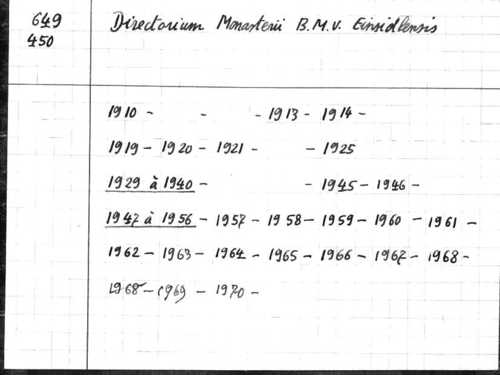 649
450
Directorium Monasterii B.M.V. Einsidlensis
1910 - - - 1913 - 1914 -
1919 - 1920 - 1921 - - 1925
1929 à 1940 - - 1945 - 1946 -
1947 à 1956 - 1957 - 1958 - 1959 - 1960 - 1961 -
1962 - 1963 - 1964 - 1965 - 1966 - 1967 - 1968 -
1968 - 1969 - 1970 -